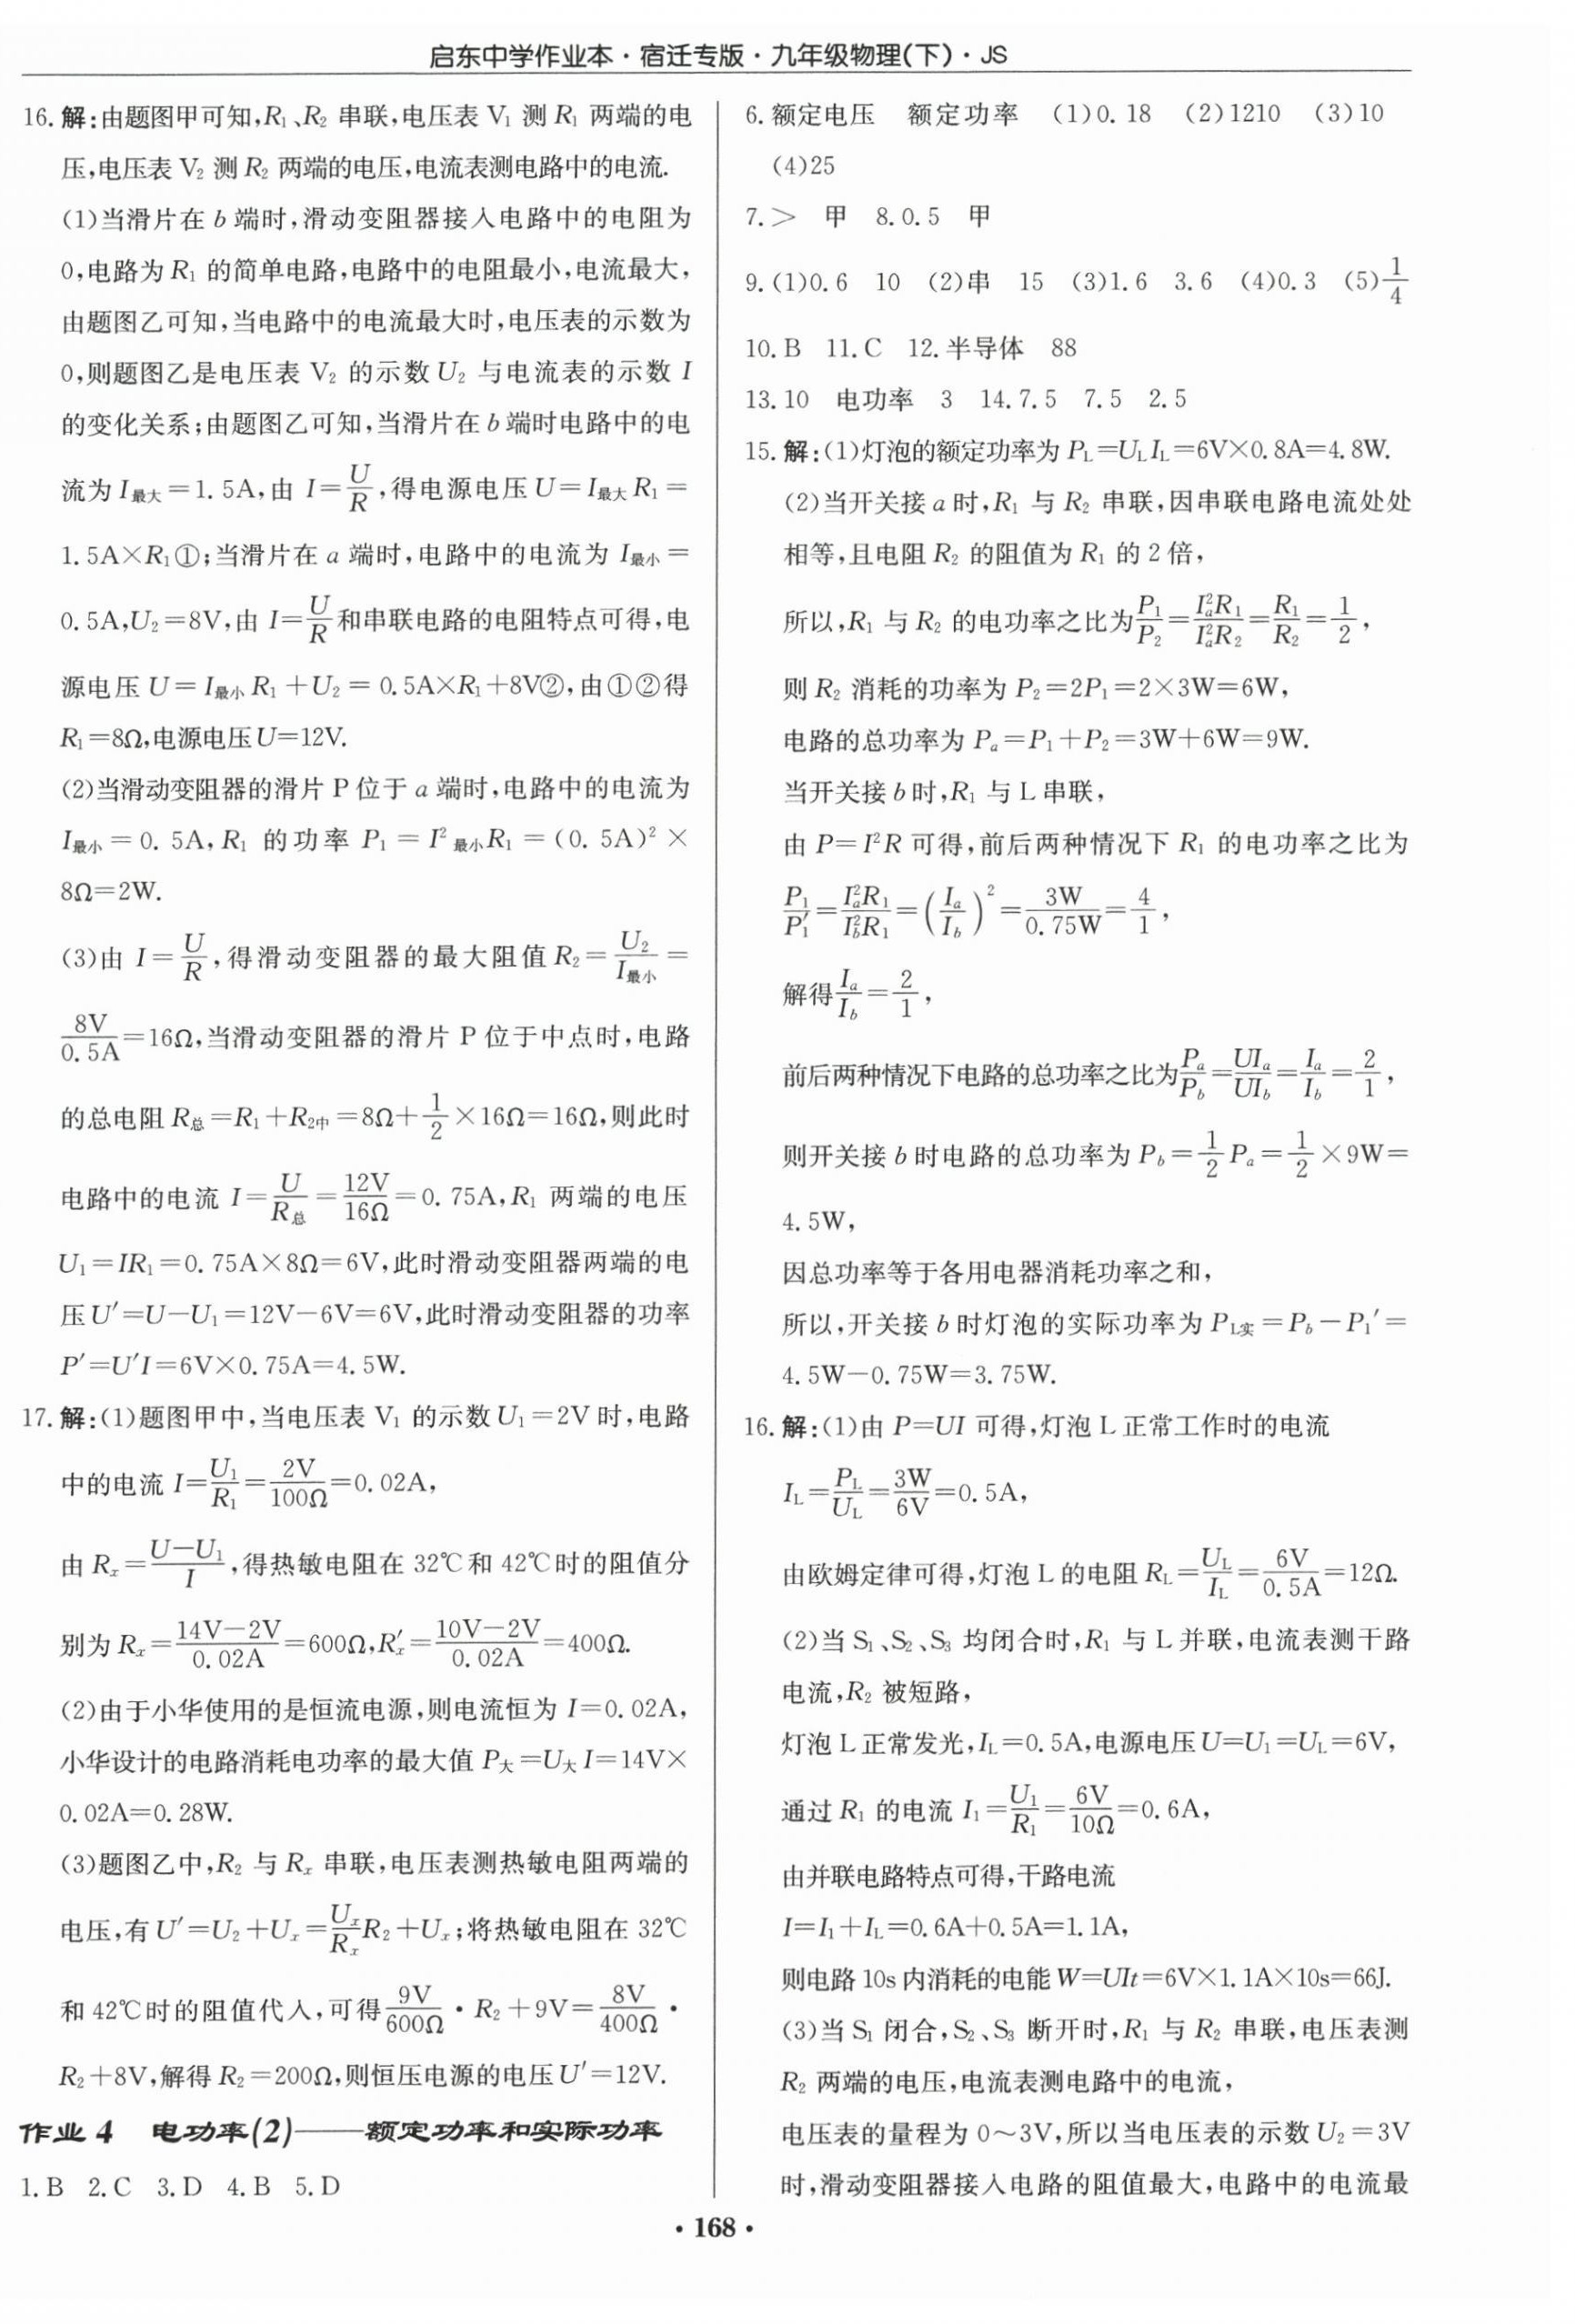 启东中学作业本·宿迁专版·九年级物理(下)·JS
16. 解:由题图甲可知,R₁、R₂ 串联,电压表 V₁ 测 R₁ 两端的电
压,电压表 V₂ 测 R₂ 两端的电压,电流表测电路中的电流.
(1)当滑片在 b 端时,滑动变阻器接入电路中的电阻为
0,电路为 R₁ 的简单电路,电路中的电阻最小,电流最大,
由题图乙可知,当电路中的电流最大时,电压表的示数为
0,则题图乙是电压表 V₂ 的示数 U₂ 与电流表的示数 I
的变化关系;由题图乙可知,当滑片在 b 端时电路中的电
流为 I最大=1.5A,由 I=U/R,得电源电压 U=I最大R₁=
1.5A×R₁①;当滑片在 a 端时,电路中的电流为 I最小=
0.5A,U₂=8V,由 I=U/R和串联电路的电阻特点可得,电
源电压 U=I最小R₁+U₂=0.5A×R₁+8V②,由①②得
R₁=8Ω,电源电压U=12V.
(2)当滑动变阻器的滑片 P 位于 a 端时,电路中的电流为
I最小=0.5A,R₁ 的功率 P₁=I²最小R₁=(0.5A)²×
8Ω=2W.
(3)由 I=U/R,得滑动变阻器的最大阻值 R₂=U₂/I最小=
8V/0.5A=16Ω,当滑动变阻器的滑片 P 位于中点时,电路
的总电阻 R总=R₁+R₂中=8Ω+1/2×16Ω=16Ω,则此时
电路中的电流 I=U/R总=12V/16Ω=0.75A,R₁ 两端的电压
U₁=IR₁=0.75A×8Ω=6V,此时滑动变阻器两端的电
压 U′=U-U₁=12V-6V=6V,此时滑动变阻器的功率
P′=U′I=6V×0.75A=4.5W.
17. 解:(1)题图甲中,当电压表 V₁ 的示数 U₁=2V 时,电路
中的电流 I=U₁/R₁=2V/100Ω=0.02A,
由 Rₓ=(U-U₁)/I,得热敏电阻在 32℃和 42℃时的阻值分
别为 Rₓ=(14V-2V)/0.02A=600Ω,R′ₓ=(10V-2V)/0.02A=400Ω.
(2)由于小华使用的是恒流电源,则电流恒为 I=0.02A,
小华设计的电路消耗电功率的最大值 P大=U大I=14V×
0.02A=0.28W.
(3)题图乙中,R₂ 与 Rₓ 串联,电压表测热敏电阻两端的
电压,有 U′=U₂+Uₓ=Uₓ/Rₓ R₂+Uₓ;将热敏电阻在 32℃
和 42℃时的阻值代入,可得9V/600Ω·R₂+9V=8V/400Ω·
R₂+8V,解得 R₂=200Ω,则恒压电源的电压 U′=12V.
作业 4 电功率(2)——额定功率和实际功率
1.B 2.C 3.D 4.B 5.D
6.额定电压 额定功率 (1)0.18 (2)1210 (3)10
(4)25
7.> 甲 8.0.5 甲
9.(1)0.6 10 (2)串 15 (3)1.6 3.6 (4)0.3 (5)1/4
10.B 11.C 12.半导体 88
13.10 电功率 3 14.7.5 7.5 2.5
15.解:(1)灯泡的额定功率为 P_L=U_LI_L=6V×0.8A=4.8W.
(2)当开关接 a 时,R₁ 与 R₂ 串联,因串联电路电流处处
相等,且电阻 R₂ 的阻值为 R₁ 的 2 倍,
所以,R₁ 与 R₂ 的电功率之比为P₁/P₂=Iₐ²R₁/Iₐ²R₂=R₁/R₂=1/2,
则 R₂ 消耗的功率为 P₂=2P₁=2×3W=6W,
电路的总功率为 Pₐ=P₁+P₂=3W+6W=9W.
当开关接 b 时,R₁ 与 L 串联,
由 P=I²R 可得,前后两种情况下 R₁ 的电功率之比为
P₁/P₁′=Iₐ²R₁/I_b²R₁=(Iₐ/I_b)²=3W/0.75W=4/1,
解得Iₐ/I_b=2/1,
前后两种情况下电路的总功率之比为Pₐ/P_b=UIₐ/UI_b=Iₐ/I_b=2/1,
则开关接 b 时电路的总功率为 P_b=1/2Pₐ=1/2×9W=
4.5W,
因总功率等于各用电器消耗功率之和,
所以,开关接 b 时灯泡的实际功率为 P_L实=P_b-P₁′=
4.5W-0.75W=3.75W.
16.解:(1)由 P=UI 可得,灯泡 L 正常工作时的电流
I_L=P_L/U_L=3W/6V=0.5A,
由欧姆定律可得,灯泡 L 的电阻 R_L=U_L/I_L=6V/0.5A=12Ω.
(2)当 S₁、S₂、S₃ 均闭合时,R₁ 与 L 并联,电流表测干路
电流,R₂ 被短路,
灯泡 L 正常发光,I_L=0.5A,电源电压 U=U₁=U_L=6V,
通过 R₁ 的电流 I₁=U₁/R₁=6V/10Ω=0.6A,
由并联电路特点可得,干路电流
I=I₁+I_L=0.6A+0.5A=1.1A,
则电路 10s 内消耗的电能 W=UIt=6V×1.1A×10s=66J.
(3)当 S₁ 闭合,S₂、S₃ 断开时,R₁ 与 R₂ 串联,电压表测
R₂ 两端的电压,电流表测电路中的电流,
电压表的量程为 0～3V,所以当电压表的示数 U₂=3V
时,滑动变阻器接入电路的阻值最大,电路中的电流最
·168·